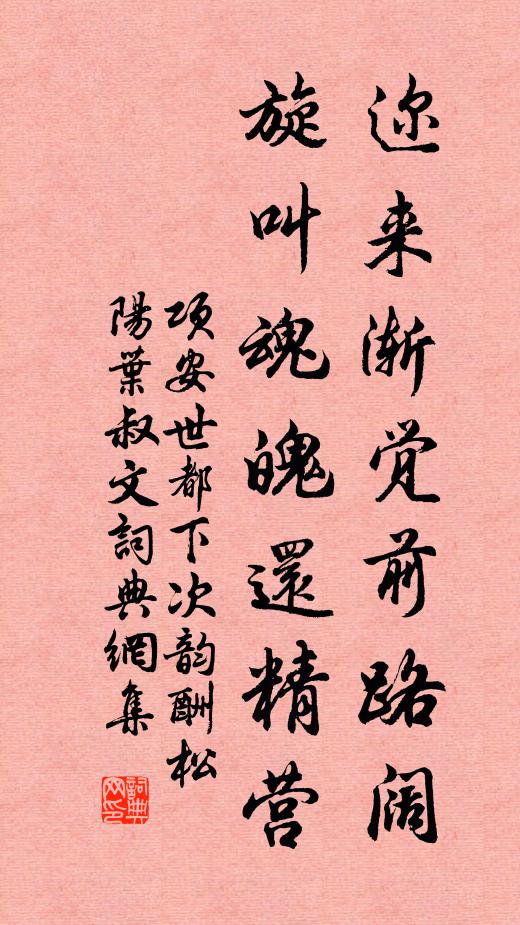 迩来渐觉前路阔
旋叫魂魄還精营
项安世都下次韵酬松
陽葉叔文詞典網集
詞典网印